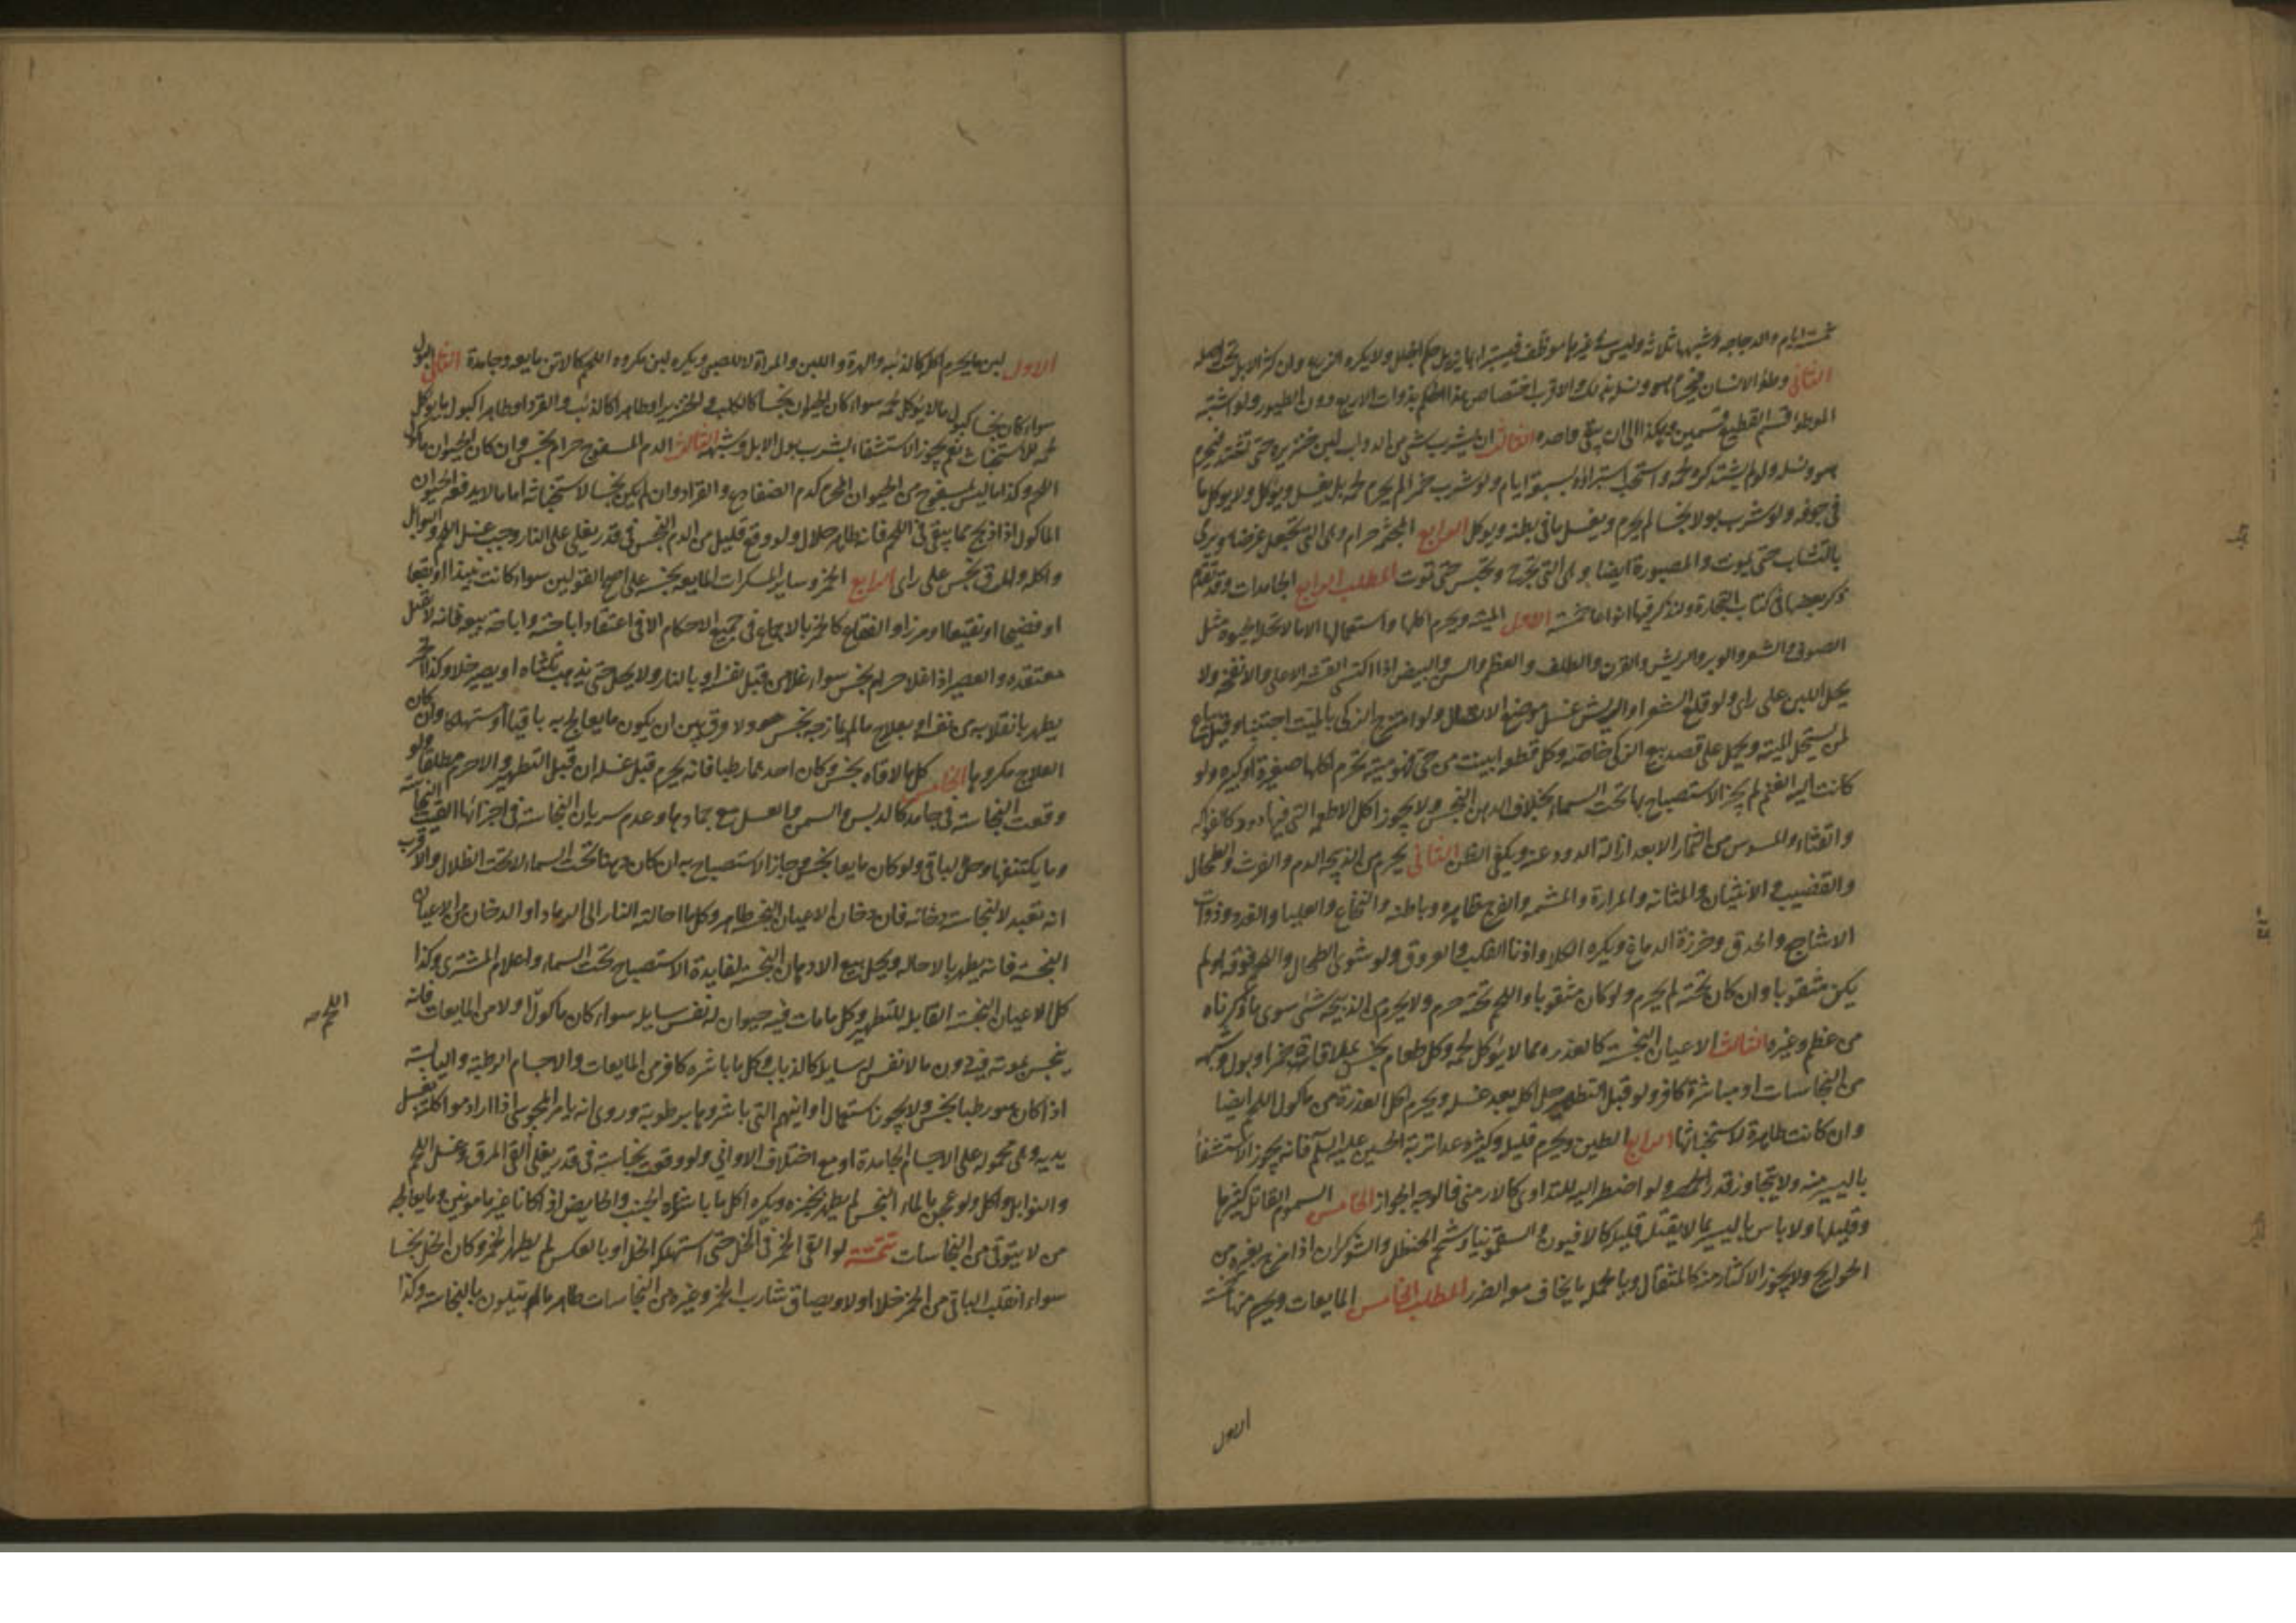 خمسة ايام والدجاجه وشبهها ثلاثة وليس في غيرها موظف فيستبرأ بما يزيل حكم الجلل ولا يكره الزرع وان كثر الابل تحت اصله
الثاني وطؤ الانسان فيحرم هو ونسله بذلك والاقرب اختصاص هذا الحكم بذوات الاربع دون الطيور ولو اشتبه
الموطؤ قسم القطيع قسمين وهكذا الى ان يبقى واحده الثالث ان يشرب شيء من الدواب لبن خنزيره حتى تشتد فيحرم
هو ونسله ولو لم يشتد كره لحمه واستحب استبراؤه بسبعة ايام ولو شرب خمرا لم يحرم لحمه بل يغسل ويؤكل ولا يوكل ما
في جوفه ولو شرب بولا نجسا لم يحرم ويغسل ما في بطنه ويوكل الرابع المجثمه حرام وهي التي تجعل غرضا ويرمى
بالنشاب حتى يموت والمصبورة ايضا وهي التي تجرح وتحبس حتى تموت المطلب الرابع الجامدات وقد تقدم
ذكر بعضها في كتاب التجارة ولنذكر فيها انواعا خمسة الاول الميتة ويحرم اكلها واستعمالها الا ما لا تحله الحيوة مثل
الصوف والشعر والوبر والريش والقرن والظلف والعظم والسن والبيض اذا اكتسى القشر الاعلى والانفحة ولا
يحل اللبن على راى ولو قلع الشعر او الريش غسل موضع الاتصال ولو امتزج الذكى بالميت اجتنبا وقيل يباع
لمن يستحل الميتة ويحمل على قصد بيع الذكى خاصة وكل قطعه ابينت من حي فهو ميتة يحرم اكلها صغيرة او كبيره ولو
كانت الية الغنم لم يجز الاستصباح بها تحت السماء بخلاف الدهن النجس ولا يجوز اكل الاطعمه التي فيها دود كالفواكه
والقثاء والمسوس من الثمار الا بعد ازالة الدود عنه ويكفي الظن الثاني يحرم من الذبيحه الدم والفرث والطحال
والقضيب والانثيان والمثانه والمرارة والمشيمه والفرج ظاهره وباطنه والنخاع والعلبا والغدد وذوات
الاشاجع والحدق وخرزة الدماغ ويكره الكلا واذنا القلب والعروق ولو شوى الطحال واللحم فوقه او لم
يكن مثقوبا وان كان تحته لم يحرم ولو كان مثقوبا واللحم تحته حرم ولا يحرم من الذبيحه شئ سوى ما ذكرناه
من عظم وغيره الثالث الاعيان النجسة كالعذره مما لا يؤكل لحمه وكل طعام نجس بملاقاة خمر او بول وشبهه
من النجاسات او مباشرة كافر ولو قبل التطهير حل اكله بعد غسله ويحرم اكل العذرة من ماكول اللحم ايضا
وان كانت طاهرة لاستخباثها الرابع الطين ويحرم قليله وكثيره عدا تربة الحسين عليه السلم فانه يجوز الاستشفا
باليسير منه ولا يتجاوز قدر الحمصه ولو اضطر اليه للتداوى كالارمنى فالوجه الجواز الخامس السموم القاتل كثيرها
وقليلها ولا باس باليسير مما لا يقتل قليله كالافيون والسقمونيا وشحم الحنظل والشوكران اذا مزج بغيره من
الحوايج ولا يجوز الاكثار منه كالمثقال وبالجمله ما يخاف معه الضرر المطلب الخامس المايعات ويحرم منها خمسة
الاول
الاول لبن ما يحرم اكله كالذئبه والهرة واللبن والمراة للصبى ويكره لبن مكروه اللحم كالاتن مايعه وجامدة الثاني البول
سواء كان نجسا كبول ما لا يؤكل لحمه سواء كان الحيوان نجسا كالكلب والخنزير او طاهرا كالذئب والقرد او طاهرا كبول ما يؤكل
لحمه للاستخباث نعم يجوز الاستشفاء بشرب بول الابل وشبهه الثالث الدم المسفوح حرام نجس وان كان الحيوان ماكول
اللحم وكذا ما ليس بمسفوح من الحيوان المحرم كدم الضفادع والقراد وان لم يكن نجسا لاستخباثه اما ما لا يدفعه الحيوان
الماكول اذا ذبح مما يبقى في اللحم فانه طاهر حلال ولو وقع قليل من الدم النجس في قدر يغلى على النار وجب غسل اللحم والتوابل
واكله والمرق نجس على راى الرابع الخمر وساير المسكرات المايعه نجسه على اصح القولين سواء كانت نبيذا او بتعا
او فضيخا او نقيعا او مزرا والفقاع كالخمر بالاجماع في جميع الاحكام الا في اعتقاد اباحته واباحة بيعه فانه لا يقتل
معتقده والعصير اذا غلا حرام نجس سواء غلا من قبل نفسه او بالنار ولا يحل حتى يذهب ثلثاه او يصير خلا وكذا الخمر
يطهر بانقلابه من نفسه او بعلاج ما لم يمازجه نجس ولا فرق بين ان يكون ما يعالج به باقيا او مستهلكا وان كان
العلاج مكروها الخامس كل ما لاقاه نجس وكان احدهما رطبا فانه يحرم قبل غسله ان قبل التطهير والا حرم مطلقا ولو
وقعت النجاسة في جامد كالدبس والسمن والعسل مع جمادها وعدم سريان النجاسة في اجزائها القيت النجاسة
وما يكتنفها وحل الباقي ولو كان مايعا نجس وجاز الاستصباح به ان كان دهنا تحت السماء لا تحت الظلال والاقرب
انه تعبد لا لنجاسة دخانه فان دخان الاعيان النجسه طاهر وكل ما احالته النار الى الرماد او الدخان من الاعيان
النجسة فانه يطهر بالاحاله ويحل بيع الادهان النجسه لفايدة الاستصباح تحت السماء واعلام المشترى وكذا
كل الاعيان النجسة القابلة للتطهير وكل ما مات فيه حيوان له نفس سايله سواء كان ماكولا او لا من المايعات فانه
ينجس بموته فيه دون ما لا نفس له سايله كالذباب وكل ما باشره كافر من المايعات والاجسام الرطبة واليابسة
اذا كان هو رطبا نجس ولا يجوز استعمال اوانيهم التي باشروها برطوبة وروى انه يامر المجوسى اذا اراد مواكلته بغسل
يديه وهي محموله على الاجسام الجامدة او مع اختلاف الاوانى ولو وقعت نجاسة في قدر يغلى القى المرق وغسل اللحم
والتوابل واكل ولو عجن بالماء النجس لم يطهر بخبزه ويكره اكل ما باشره الجنب والحايض اذا كانا غير مامونين وما يعالجه
من لا يتوقى من النجاسات تتمة لو القى الخمر في الخل حتى استهلكه الخل او بالعكس لم يطهر الخمر وكان الخل نجسا
سواء انقلب الباقى من الخمر خلا اولا وبصاق شارب الخمر وغيره من النجاسات طاهر ما لم يتلون بالنجاسة وكذا